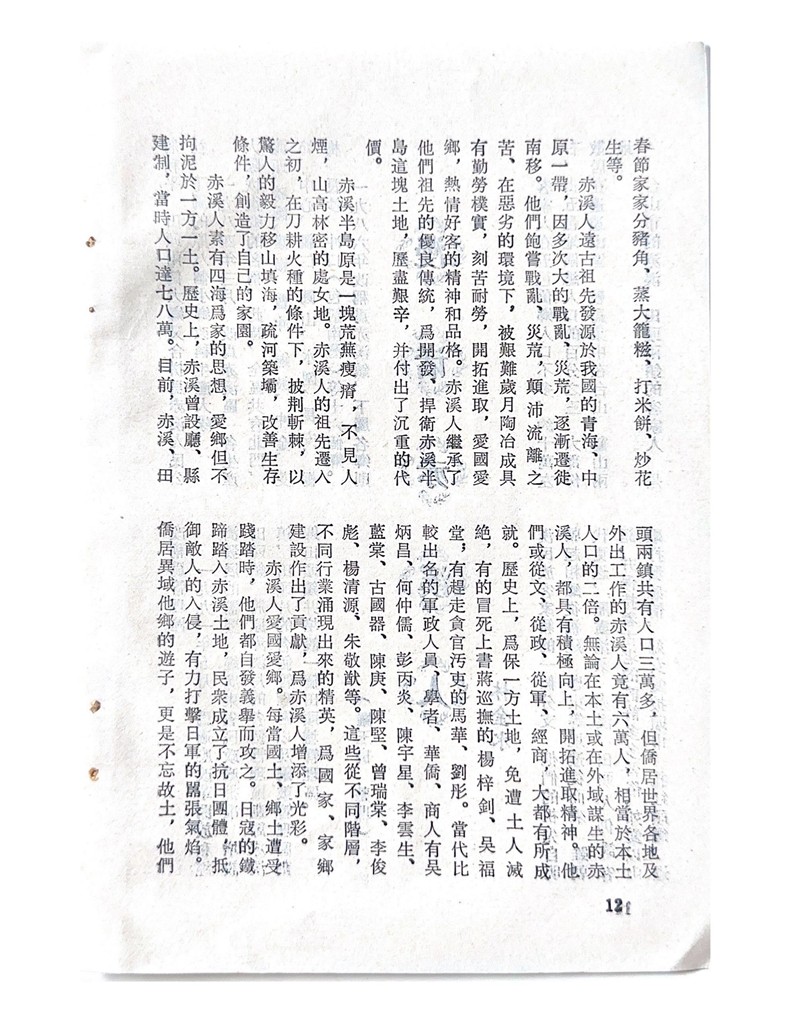 春節家家分豬角、蒸大籠糍、打米餅、炒花
生等。
赤溪人遠古祖先發源於我國的青海、中
原一帶，因多次大的戰亂、災荒，逐漸遷徙
南移。他們飽嘗戰亂、災荒，顛沛流離之
苦、在惡劣的環境下，被艱難歲月陶冶成具
有勤勞樸實，刻苦耐勞，開拓進取，愛國愛
鄉，熱情好客的精神和品格。赤溪人繼承了
他們祖先的優良傳統，爲開發、捍衛赤溪半
島這塊土地，歷盡艱辛，并付出了沉重的代
價。
赤溪半島原是一塊荒蕪瘦瘠，不見人
煙，山高林密的處女地。赤溪人的祖先遷入
之初，在刀耕火種的條件下，披荆斬棘，以
驚人的毅力移山填海，疏河築壩，改善生存
條件，創造了自己的家園。
赤溪人素有四海爲家的思想，愛鄉但不
拘泥於一方一土。歷史上，赤溪曾設廳、縣
建制，當時人口達七八萬。目前，赤溪、田
頭兩鎮共有人口三萬多，但僑居世界各地及
外出工作的赤溪人竟有六萬人，相當於本土
人口的二倍。無論在本土或在外域謀生的赤
溪人，都具有積極向上，開拓進取精神。他
們或從文、從政、從軍、經商，大都有所成
就。歷史上，爲保一方土地，免遭土人滅
絶，有的冒死上書蔣巡撫的楊梓釗、吴福
堂；有趕走貪官汚吏的馬華、劉彤。當代比
較出名的軍政人員、學者、華僑、商人有吴
炳昌、何仲儒、彭丙炎、陳宇星、李雲生、
藍棠、古國器、陳庚、陳堅、曾瑞棠、李俊
彪、楊清源、朱敬猷等。這些從不同階層，
不同行業涌現出來的精英，爲國家、家鄉
建設作出了貢獻，爲赤溪人增添了光彩。
赤溪人愛國愛鄉。每當國土、鄉土遭受
踐踏時，他們都自發義舉而攻之。日寇的鐵
蹄踏入赤溪土地，民衆成立了抗日團體，抵
御敵人的入侵，有力打擊日軍的囂張氣焰。
僑居異域他鄉的遊子，更是不忘故土，他們
12